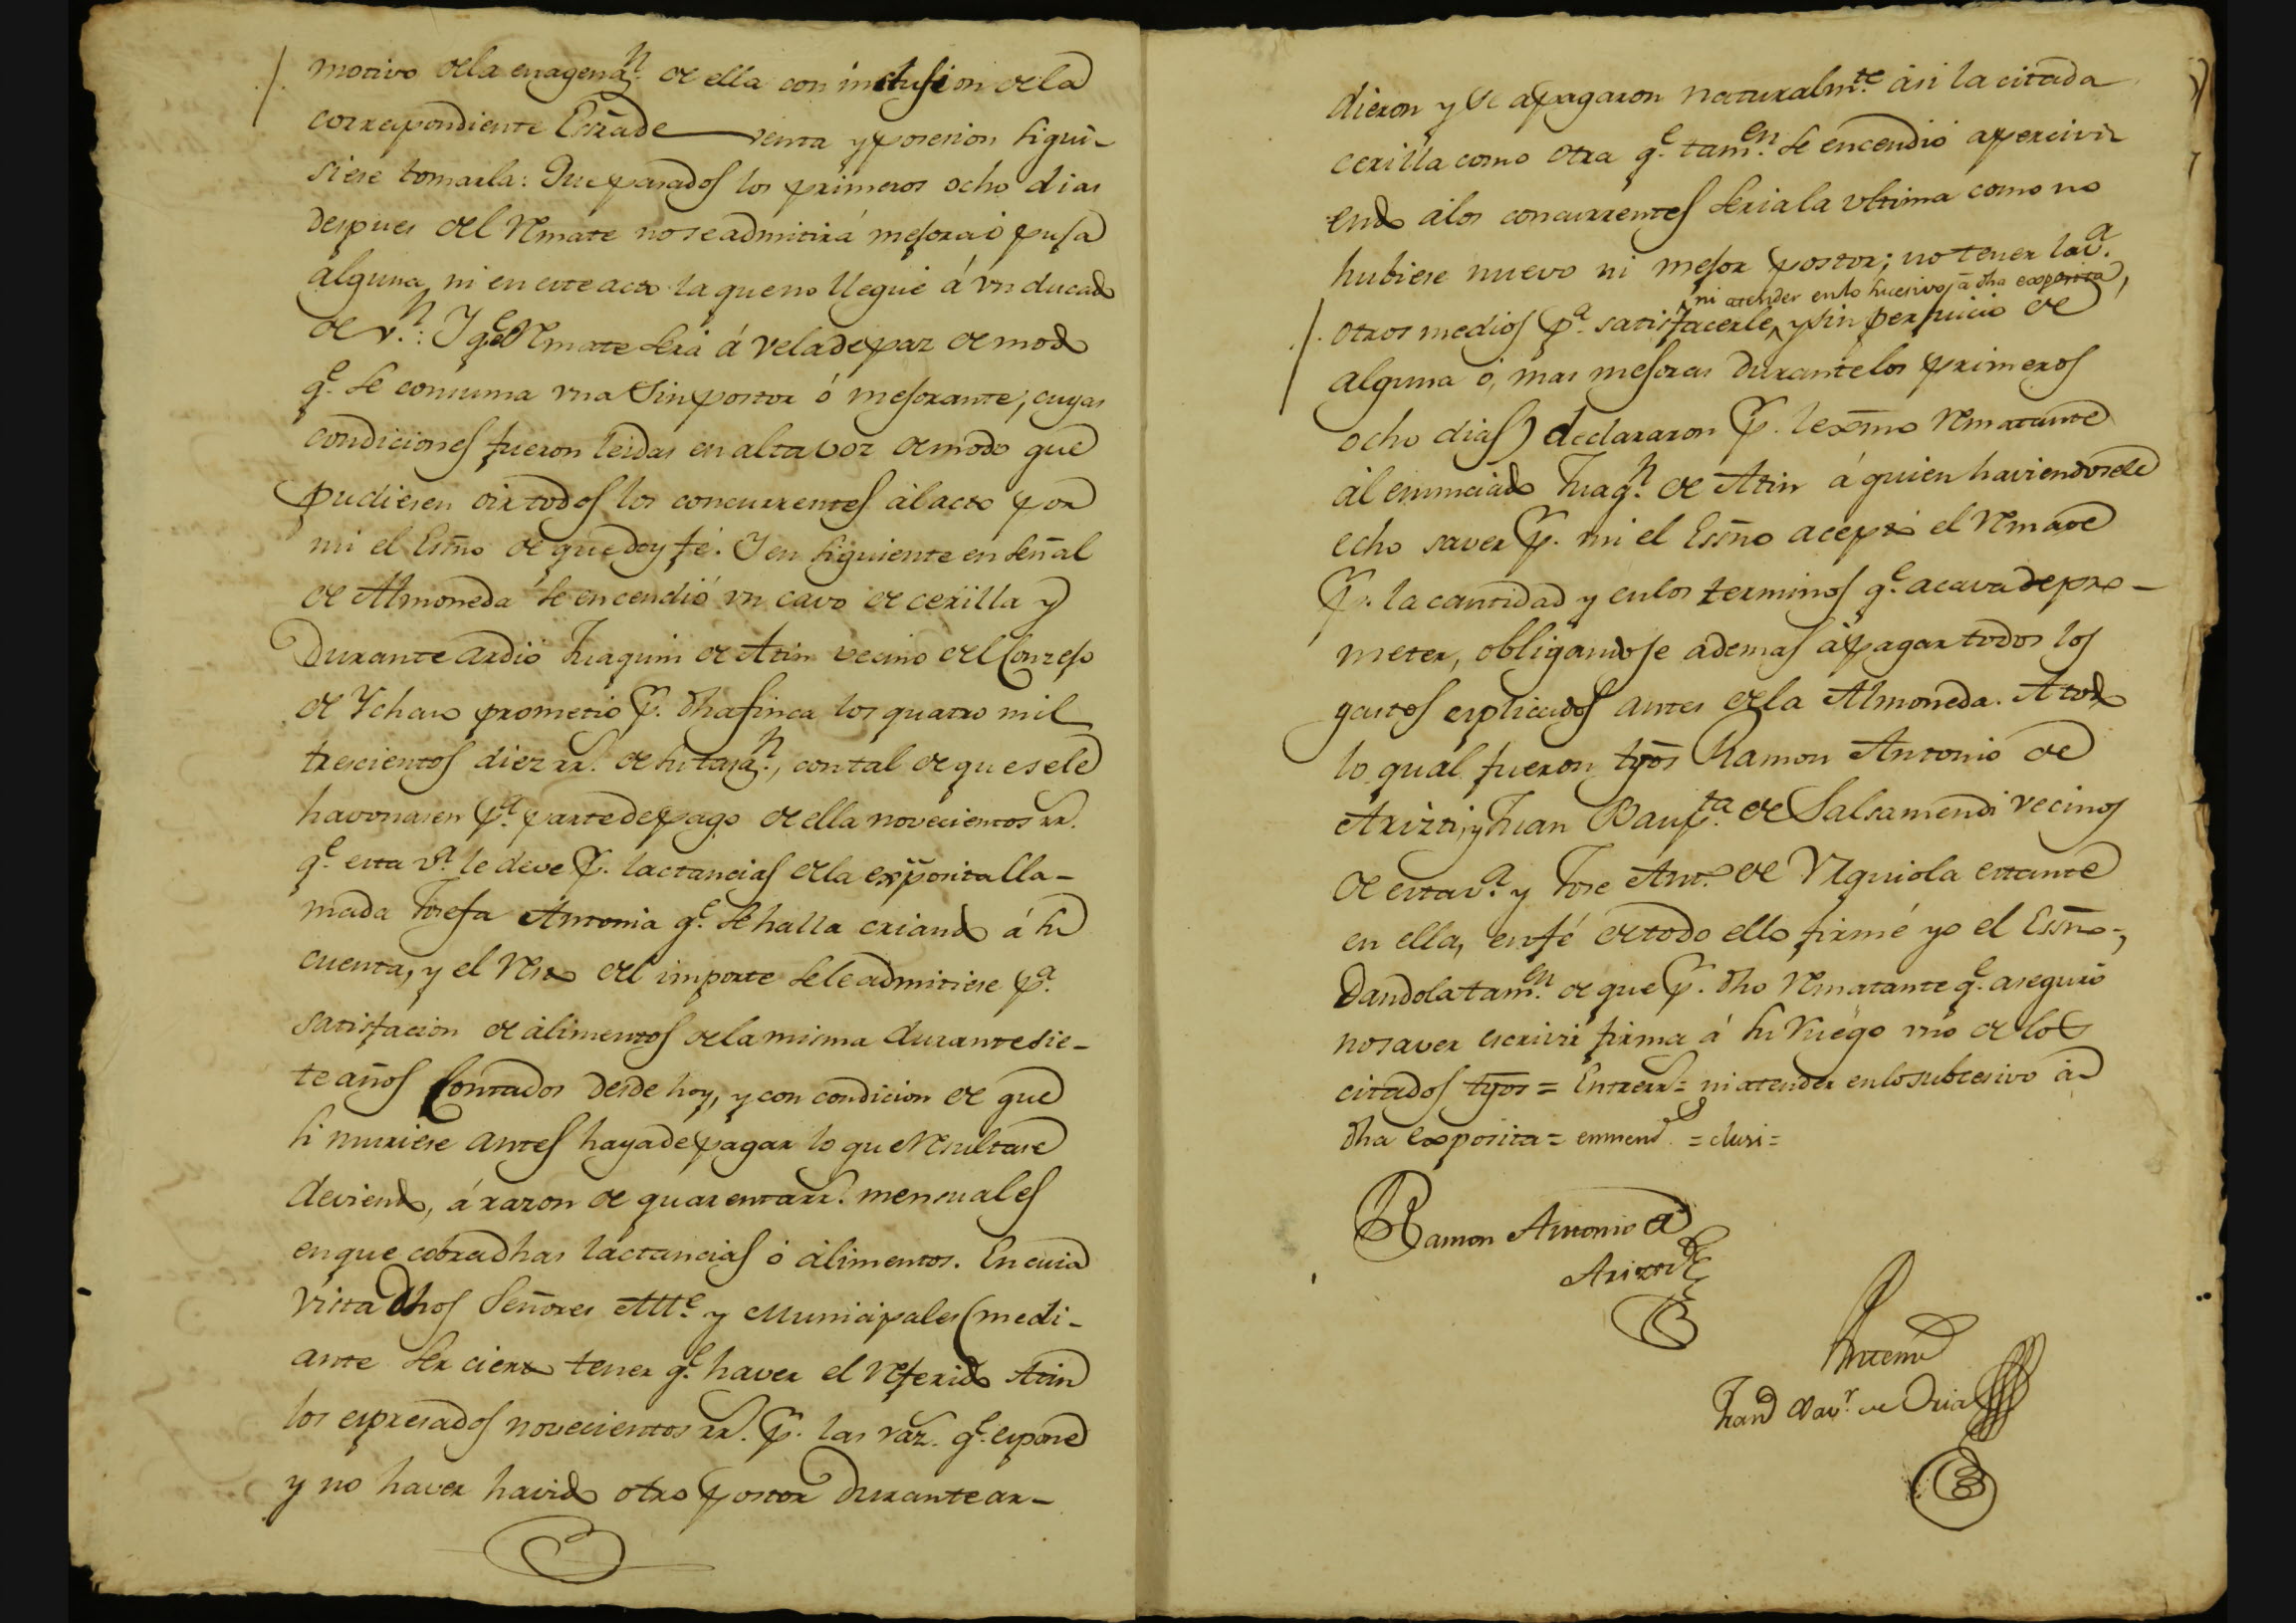 motivo dela enagenan. de ella con inclusion dela
correspondiente Essrade venta y posesion siqui-
siese tomarla: Que pasados los primeros ocho dias
despues del Remate no se admitirá mejora ó puja
alguna, ni en este acto la que no llegue á un ducado
de vn.: Y qe. el Remate será á vela de paz de modo
qe. se consuma una sin postor ó mejorante; cuyas
condiciones fueron leidas en alta voz demodo que
pudiesen oir todos los concurrentes al acto por
mi el Essno de que doy fé. Y en siguiente en señal
de Almoneda se encendió un cavo de cerilla y
Durante ardió Juaquin de Atin vecino del Conzejo
de Ychaso prometió pr. dha finca los quatro mil
trescientos diez rr. de su tasan., con tal de que sele
havonasen pa. parte de pago de ella novecientos rr.
qe. esta va. le deve pr. lactancias dela expósita lla-
mada Josefa Antonia qe. se halla criando á su
cuenta, y el Resto del importe sele admitiese pa.
satisfacion de alimentos dela misma durante sie-
te años Contados desde hoy, y con condicion de que
si muriese antes haya de pagar lo que Resultase
deviendo, á razon de quarenta rr. mensuales
en que cobra dhas lactancias ó alimentos. En cuia
vista dhos Señores Alle. y Municipales (medi-
ante ser cierto tener qe. haver el Referido Atin
los espresados novecientos rr. pr. las raz. qe. espone
y no haver havido otro postor durante ar-
dieron y se apagaron naturalmte. asi la citada
cerilla como otra qe. tamen. se encendió apercivi
endo alos concurrentes seria la ultima como no
hubiese nuevo ni mejor postor; no tener la va.
ni atender enlo sucesivo á dha exposita,
otros medios pa. satisfacerle, y sin perjuicio de
alguna ó, mas mejoras durante los primeros
ocho dias) declararon pr. lexmo Rematante
al enunciado Juaqn. de Atin á quien haviendosele
echo saver pr. mi el Essno aceptó el Remate
pr. la cantidad y enlos terminos qe. acava de pro-
meter, obligandose ademas á pagar todos los
gastos esplicados antes dela Almoneda. A todo
lo qual fueron tgos Ramon Antonio de
Arizti, y Juan Bauta. de Salsamendi vecinos
de esta va. y Jose Anto. de Urquiola estante
en ella, en fé de todo ello firmé yo el Essno-,
Dandola tamen. de que pr. dho Rematante qe. aseguró
no saver escrivir firma á su Ruego uno de los
citados tgos = Entrerr = ni atender enlo subcesivo á
dha exposita = enmendo. = clusi =
Ramon Antonio de
Arizti
Antemi
Franco Xavr. de Oria